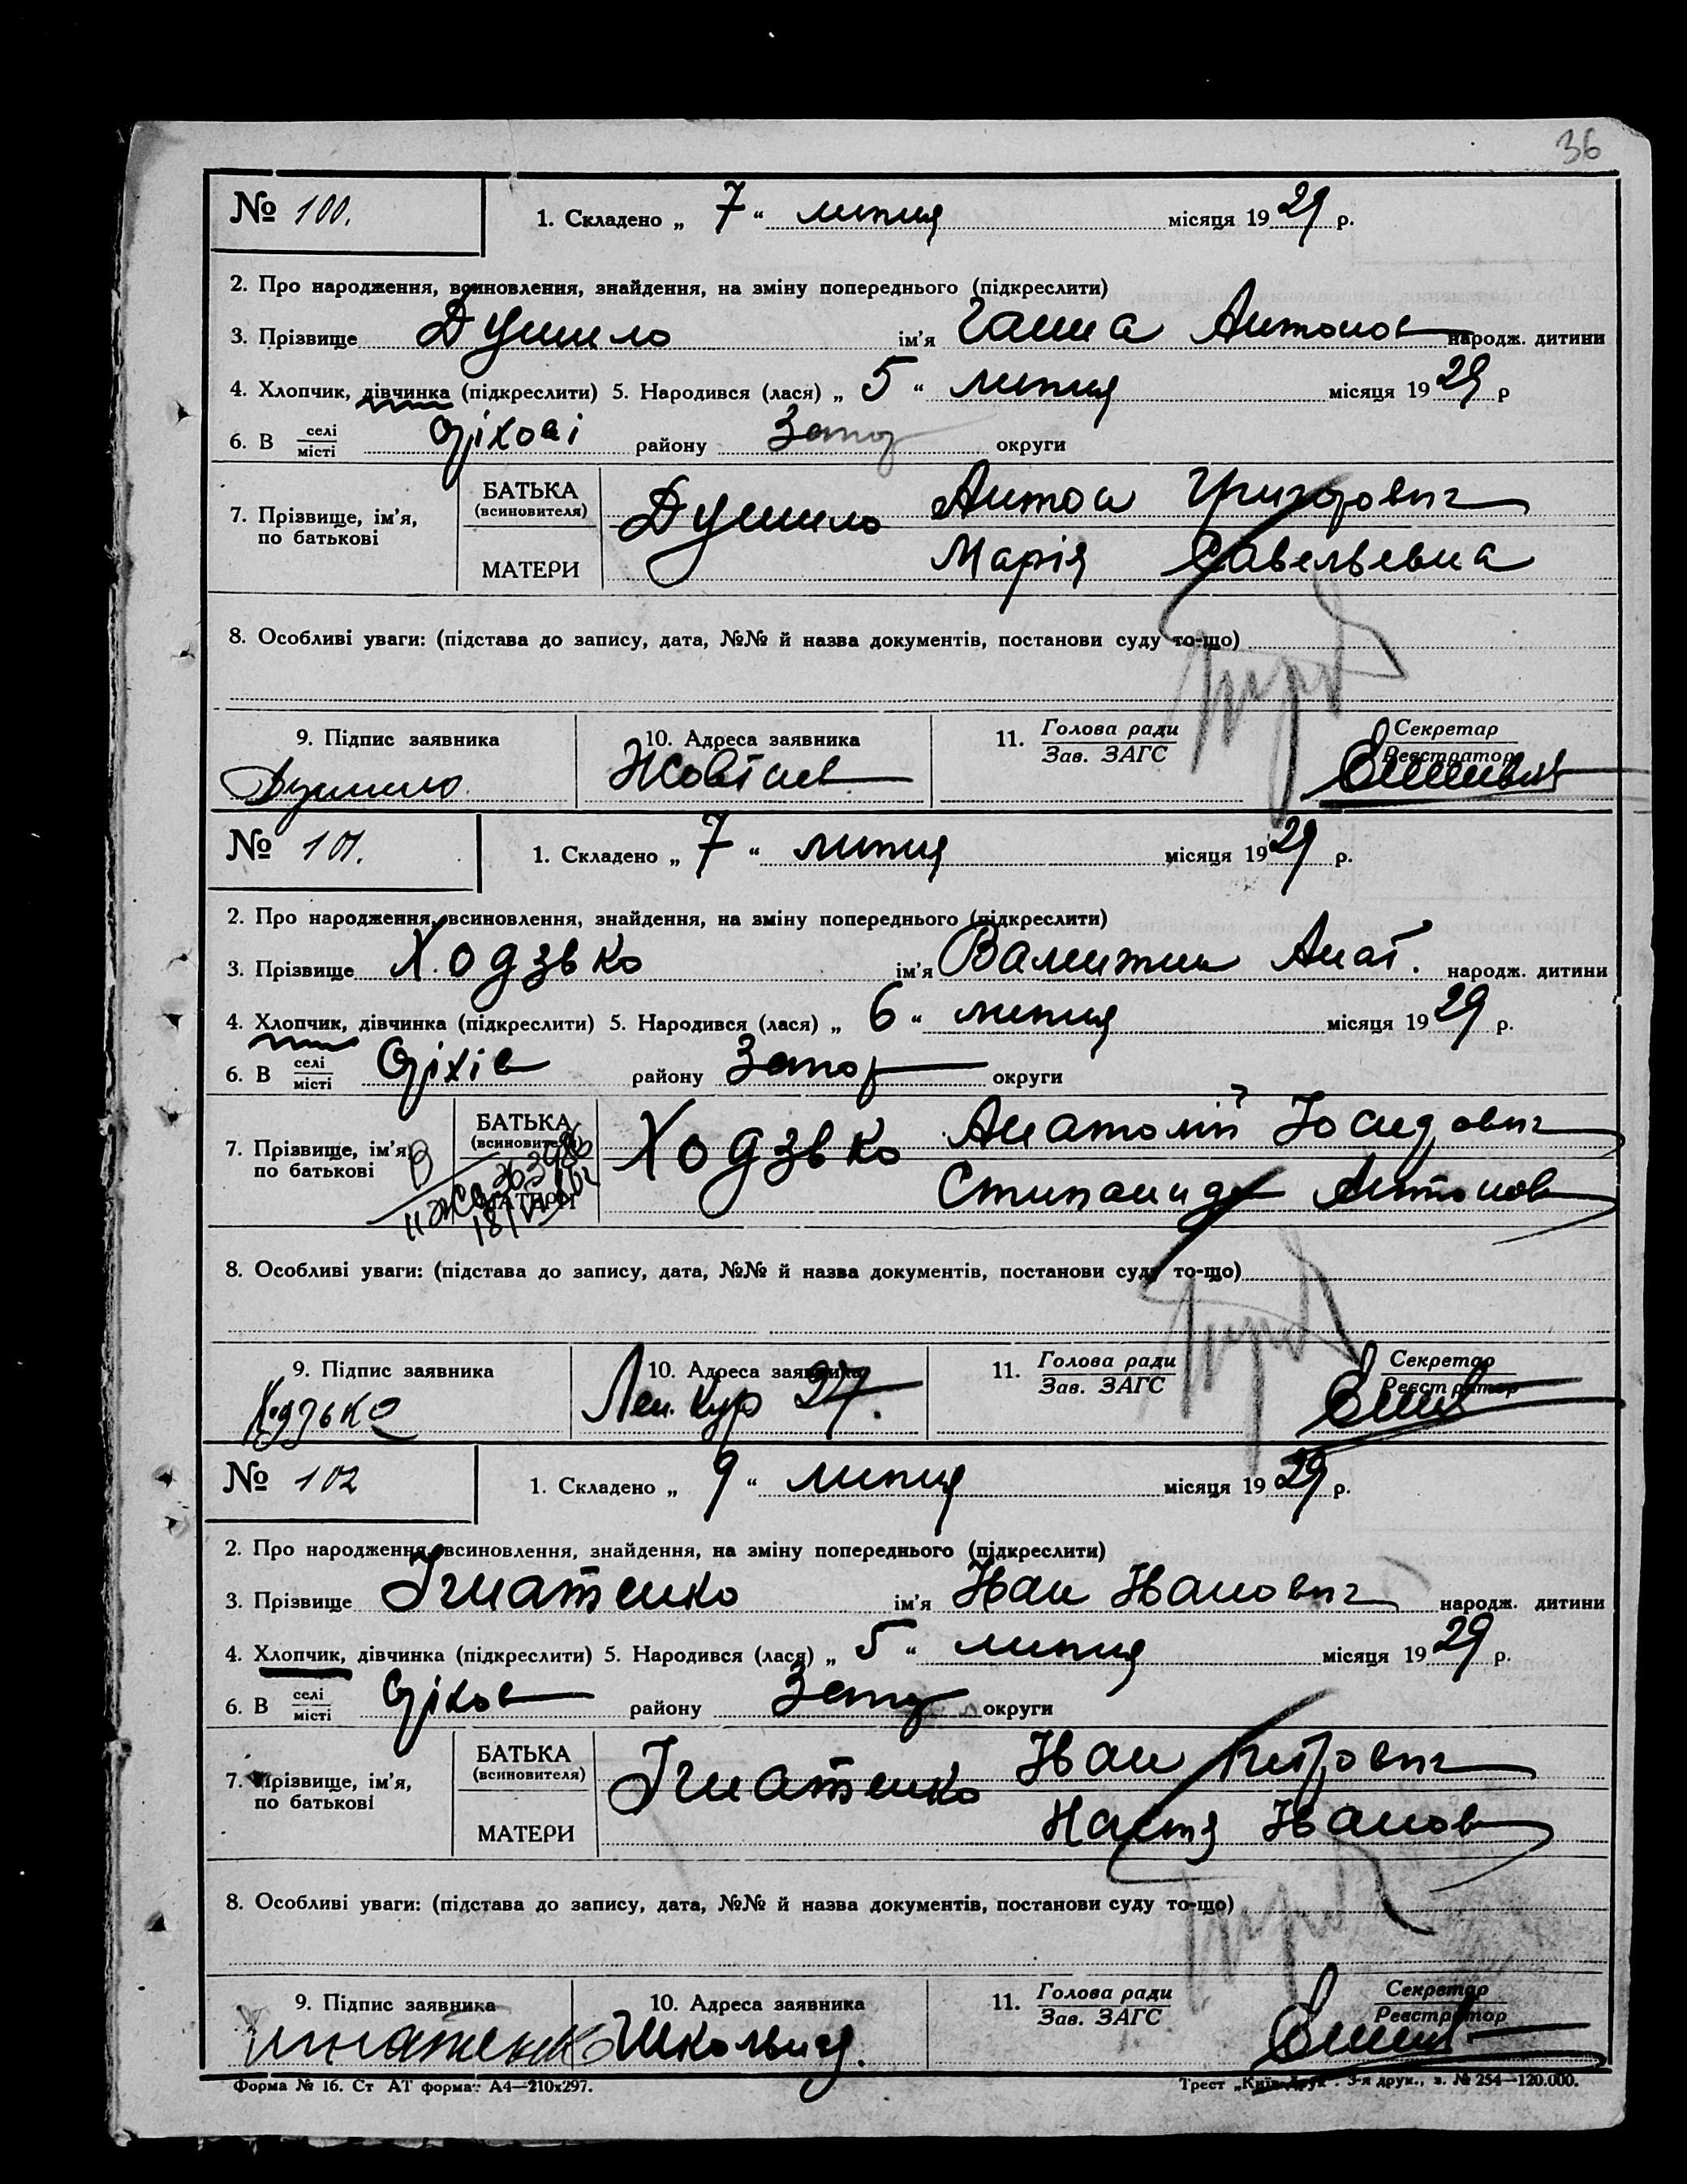 36
№ 100. 1. Складено „ 7 “ липня місяця 1929 р.
2. Про народження, всиновлення, знайдення, на зміну попереднього (підкреслити)
3. Прізвище Душило ім'я Ганна Антонов народж. дитини
4. Хлопчик, дівчинка (підкреслити) 5. Народився (лася) „ 5 “ липня місяця 1929 р
6. В селі місті Оріхові району Запор округи
7. Прізвище, ім'я, по батькові БАТЬКА (всиновителя) Душило Антон Григорович
МАТЕРИ Марія Савельевна
8. Особливі уваги: (підстава до запису, дата, №№ й назва документів, постанови суду то-що)
9. Підпис заявника 10. Адреса заявника 11. Голова ради Зав. ЗАГС Секретар Реєстратор
Душило Жовтнев
№ 101. 1. Складено „ 7 “ липня місяця 1929 р.
2. Про народження, всиновлення, знайдення, на зміну попереднього (підкреслити)
3. Прізвище Ходзько ім'я Валентин Анат. народж. дитини
4. Хлопчик, дівчинка (підкреслити) 5. Народився (лася) „ 6 “ липня місяця 1929 р.
6. В селі місті Оріхів району Запор округи
7. Прізвище, ім'я, по батькові БАТЬКА (всиновителя) Ходзько Анатолій Йосидович
МАТЕРИ Стипанида Антонов
8. Особливі уваги: (підстава до запису, дата, №№ й назва документів, постанови суду то-що)
9. Підпис заявника 10. Адреса заявника 11. Голова ради Зав. ЗАГС Секретар Реєстратор
Ходзько Лен. Кур 27.
№ 102 1. Складено „ 9 “ липня місяця 1929 р.
2. Про народження, всиновлення, знайдення, на зміну попереднього (підкреслити)
3. Прізвище Ігнатенко ім'я Іван Іванович народж. дитини
4. Хлопчик, дівчинка (підкреслити) 5. Народився (лася) „ 5 “ липня місяця 1929 р.
6. В селі місті Оріхов району Запор округи
7. Прізвище, ім'я, по батькові БАТЬКА (всиновителя) Ігнатенко Іван Петрович
МАТЕРИ Настя Іванов
8. Особливі уваги: (підстава до запису, дата, №№ й назва документів, постанови суду то-що)
9. Підпис заявника 10. Адреса заявника 11. Голова ради Зав. ЗАГС Секретар Реєстратор
Игнатенко Школьная.
Форма № 16. Ст АТ форма: А4—210х297. Трест „Київ-Друк“. 3-я друк., з. № 254—120.000.